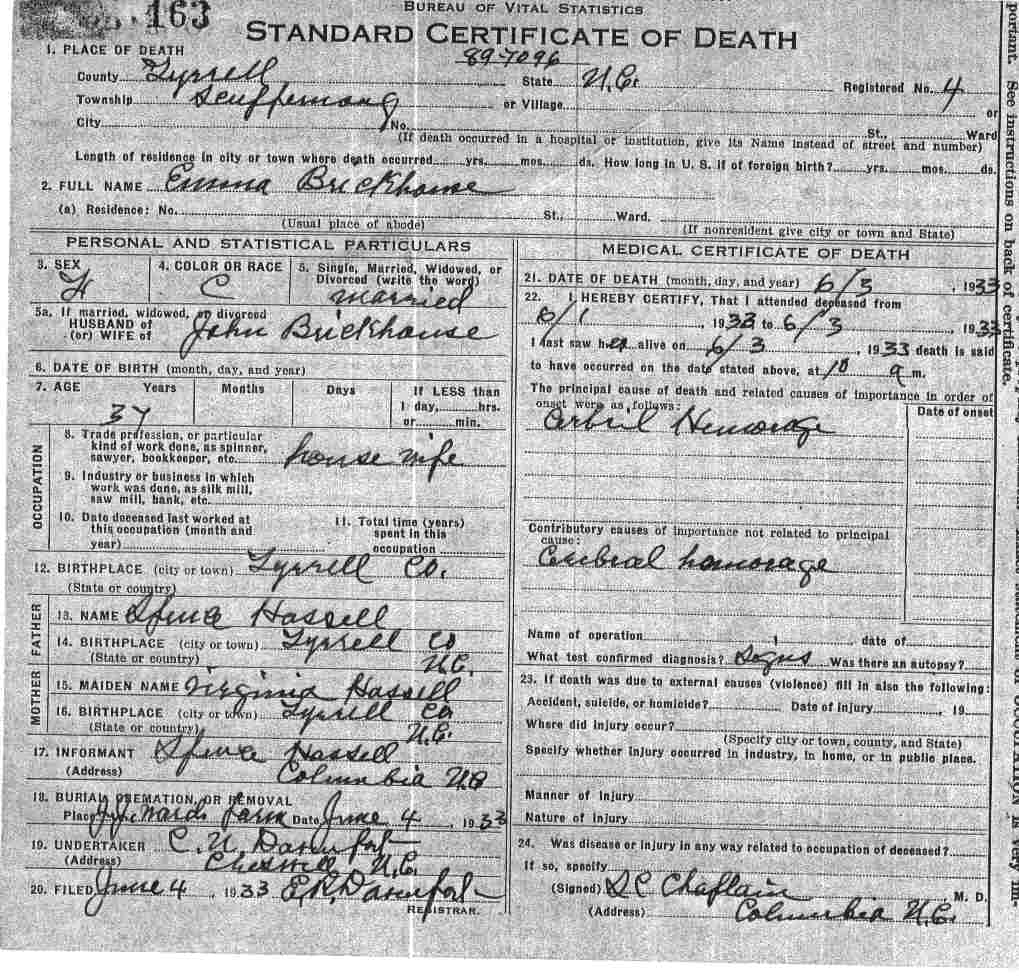 163
BUREAU OF VITAL STATISTICS
STANDARD CERTIFICATE OF DEATH
89-7096
1. PLACE OF DEATH
County Tyrrell State N.C. Registered No. 4
Township Scuppernong or Village or
City No. St., Ward
(If death occurred in a hospital or institution, give its Name instead of street and number)
Length of residence in city or town where death occurred yrs. mos. ds. How long in U. S. if of foreign birth? yrs. mos. ds.
2. FULL NAME Emma Brickhouse
(a) Residence: No. St., Ward.
(Usual place of abode) (If nonresident give city or town and State)
PERSONAL AND STATISTICAL PARTICULARS
3. SEX F
4. COLOR OR RACE C
5. Single, Married, Widowed, or Divorced (write the word) married
5a. If married, widowed, or divorced
HUSBAND of
(or) WIFE of John Brickhouse
6. DATE OF BIRTH (month, day, and year)
7. AGE Years Months Days If LESS than
1 day, hrs.
or min.
37
OCCUPATION
8. Trade profession, or particular
kind of work done, as spinner,
sawyer, bookkeeper, etc. house wife
9. Industry or business in which
work was done, as silk mill,
saw mill, bank, etc.
10. Date deceased last worked at
this occupation (month and
year)
11. Total time (years)
spent in this
occupation
12. BIRTHPLACE (city or town) Tyrrell Co.
(State or country)
FATHER
13. NAME Spence Hassell
14. BIRTHPLACE (city or town) Tyrrell Co
(State or country) N.C.
MOTHER
15. MAIDEN NAME Virginia Hassell
16. BIRTHPLACE (city or town) Tyrrell Co
(State or country) N.C.
17. INFORMANT Spence Hassell
(Address) Columbia N.C
18. BURIAL, CREMATION, OR REMOVAL
Place farm Date June 4, 1933
19. UNDERTAKER C. N. Davenport
(Address) Creswell N.C.
20. FILED June 4 1933 Davenport
REGISTRAR.
MEDICAL CERTIFICATE OF DEATH
21. DATE OF DEATH (month, day, and year) 6/3, 1933
22. I HEREBY CERTIFY, That I attended deceased from
6/1, 1933 to 6/3, 1933
I last saw her alive on 6/3, 1933 death is said
to have occurred on the date stated above, at 10 m.
The principal cause of death and related causes of importance in order of
onset were as follows: Date of onset
Cerbril Hemorage
Contributory causes of importance not related to principal
cause:
Cerebral homorage
Name of operation date of
What test confirmed diagnosis? Was there an autopsy?
23. If death was due to external causes (violence) fill in also the following:
Accident, suicide, or homicide? Date of injury, 19
Where did injury occur?
(Specify city or town, county, and State)
Specify whether injury occurred in industry, in home, or in public place.
Manner of Injury
Nature of Injury
24. Was disease or injury in any way related to occupation of deceased?
If so, specify
(Signed) S C Chaplain M. D.
(Address) Columbia N.C.
portant. See instructions on back of certificate.